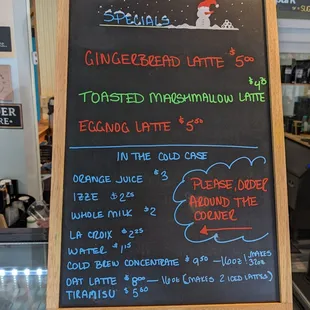 SPECIALS
GINGERBREAD LATTE $5.00
TOASTED MARSHMALLOW LATTE
EGGNOG LATTE $5.50
IN THE COLD CASE
ORANGE JUICE $3
IZZE $2.25
WHOLE MILK $2
LA CROIX $2.25
WATER $1.75
PLEASE, ORDER
AROUND THE
CORNER
COLD BREW CONCENTRATE $9.50 — 16OZ! MAKES 32OZ
OAT LATTE $8.00 — 16OZ (MAKES 2 ICED LATTES)
TIRAMISU $5.60